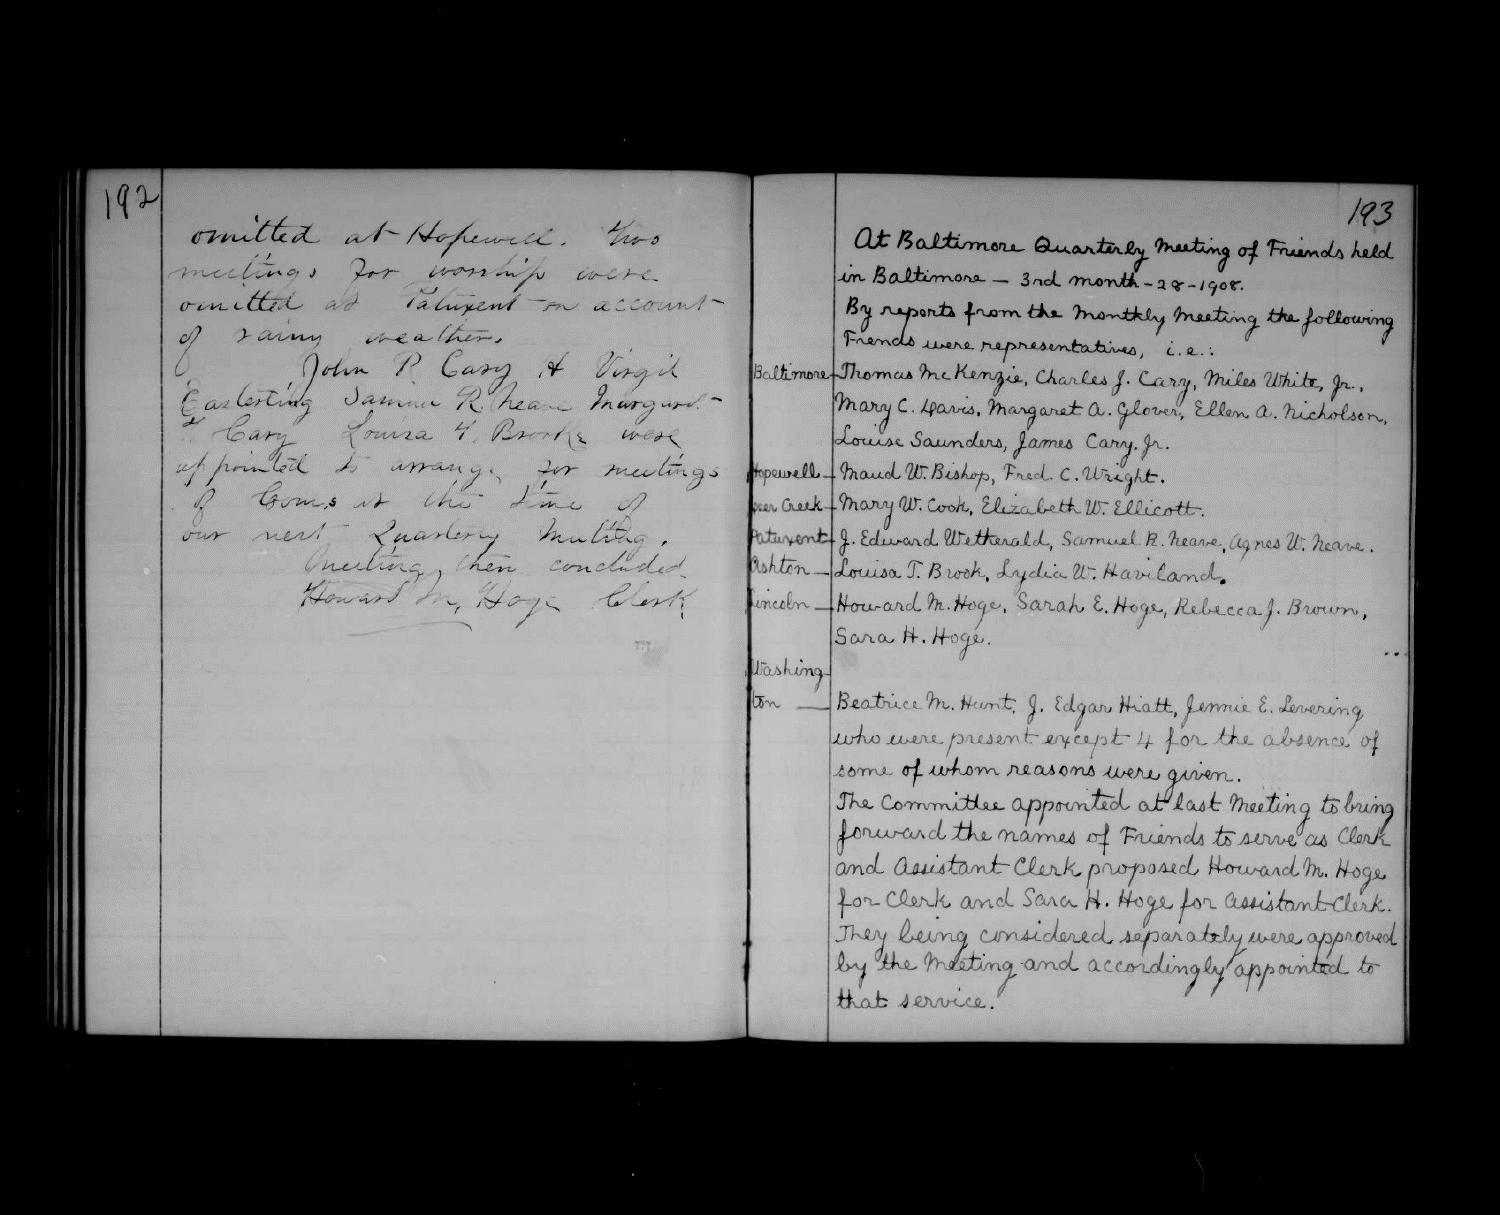 192
omitted at Hopewell. Two
meetings for worship were
omitted at Patuxent on account
of rainy weather.
John R. Cary H Virgil
Samuel R. Neave Margaret
T. Cary Louisa T. Brooke were
appointed to arrange for meetings
of at the time of
our next Quarterly Meeting.
Meeting then concluded.
Howard M. Hoge Clerk
193
At Baltimore Quarterly Meeting of Friends held
in Baltimore — 3rd month - 28 - 1908.
By reports from the Monthly Meeting the following
Friends were representatives, i.e.:
Baltimore - Thomas McKenzie, Charles J. Cary, Miles White, Jr.,
Mary C. Davis, Margaret A. Glover, Ellen A. Nicholson,
Louise Saunders, James Cary. Jr.
Hopewell - Maud W. Bishop, Fred. C. Wright.
Deer Creek - Mary W. Cook, Elizabeth W. Ellicott.
Patuxent - J. Edward Wetherald, Samuel R. Neave, Agnes W. Neave.
Ashton — Louisa T. Brook, Lydia W. Haviland.
Lincoln — Howard M. Hoge, Sarah E. Hoge, Rebecca J. Brown,
Sara H. Hoge.
Washing
ton — Beatrice M. Hunt, J. Edgar Hiatt, Jennie E. Levering
who were present except 4 for the absence of
some of whom reasons were given.
The Committee appointed at last Meeting to bring
forward the names of Friends to serve as Clerk
and Assistant Clerk proposed Howard M. Hoge
for Clerk and Sara H. Hoge for Assistant Clerk.
They being considered separately were approved
by the Meeting and accordingly appointed to
that service.